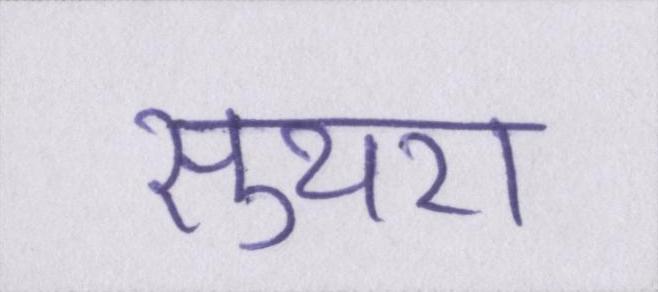 सुथरा